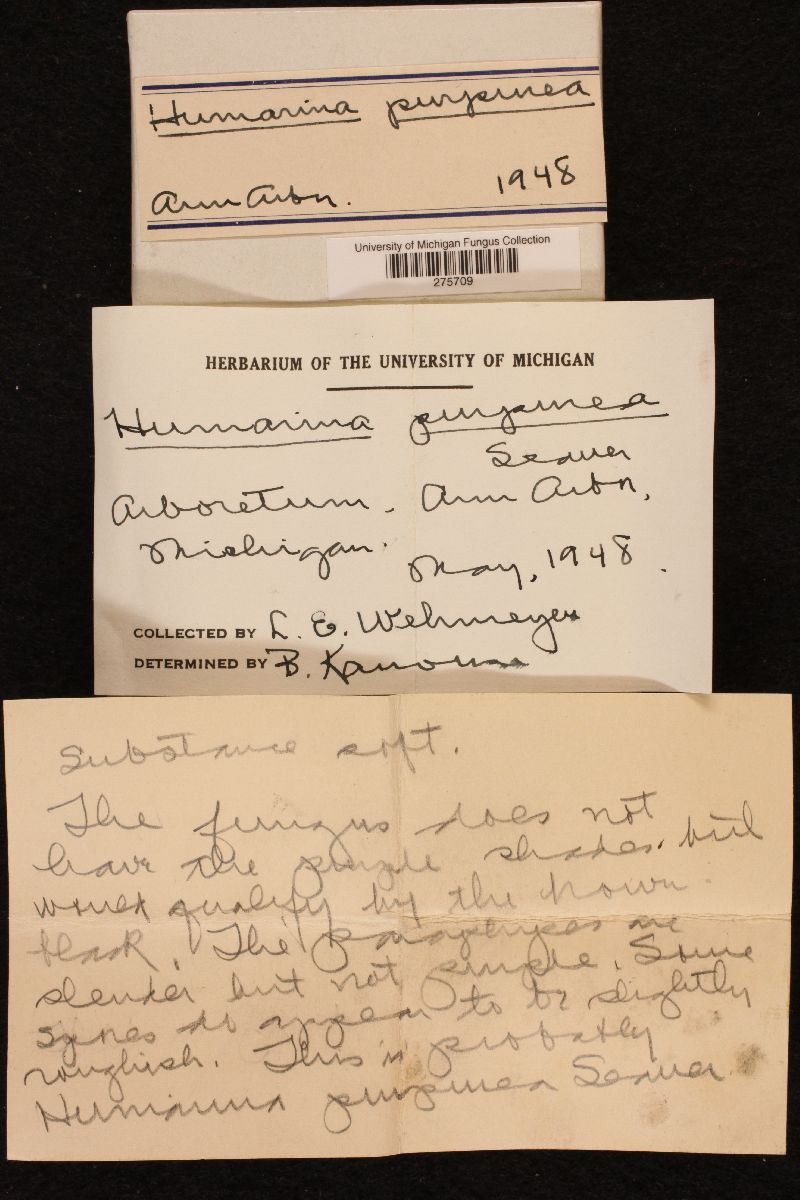 Humarina purpurea
Ann Arbor. 1948
University of Michigan Fungus Collection
275709
HERBARIUM OF THE UNIVERSITY OF MICHIGAN
Humarina purpurea
Seaver
Arboretum. Ann Arbor,
Michigan.
May, 1948.
COLLECTED BY L. E. Wehmeyer
DETERMINED BY B. Kanouse
Substance soft.
The fungus does not
have the purple shades but
would qualify by the brown
black. The paraphyses are
slender but not purple. Some
spores do appear to be slightly
roughish. This is probably
Humarina purpurea Seaver.